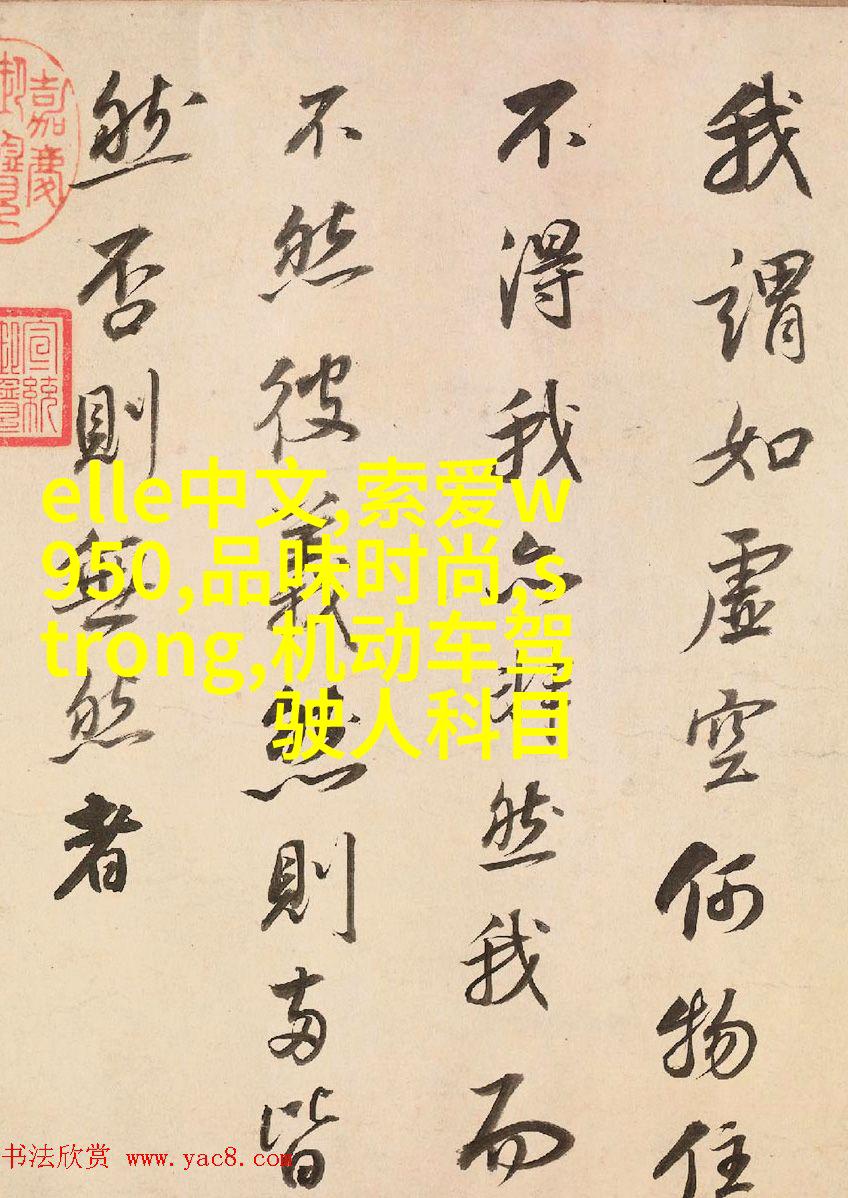 我謂如虛空何物住
不得我亦然我而
不然彼義然則兩皆
然否則無然者
嘉慶
宣統
elle中文,索爱w
950,品味时尚,s
trong,机动车驾
驶人科目
书法欣赏 www.yac8.com